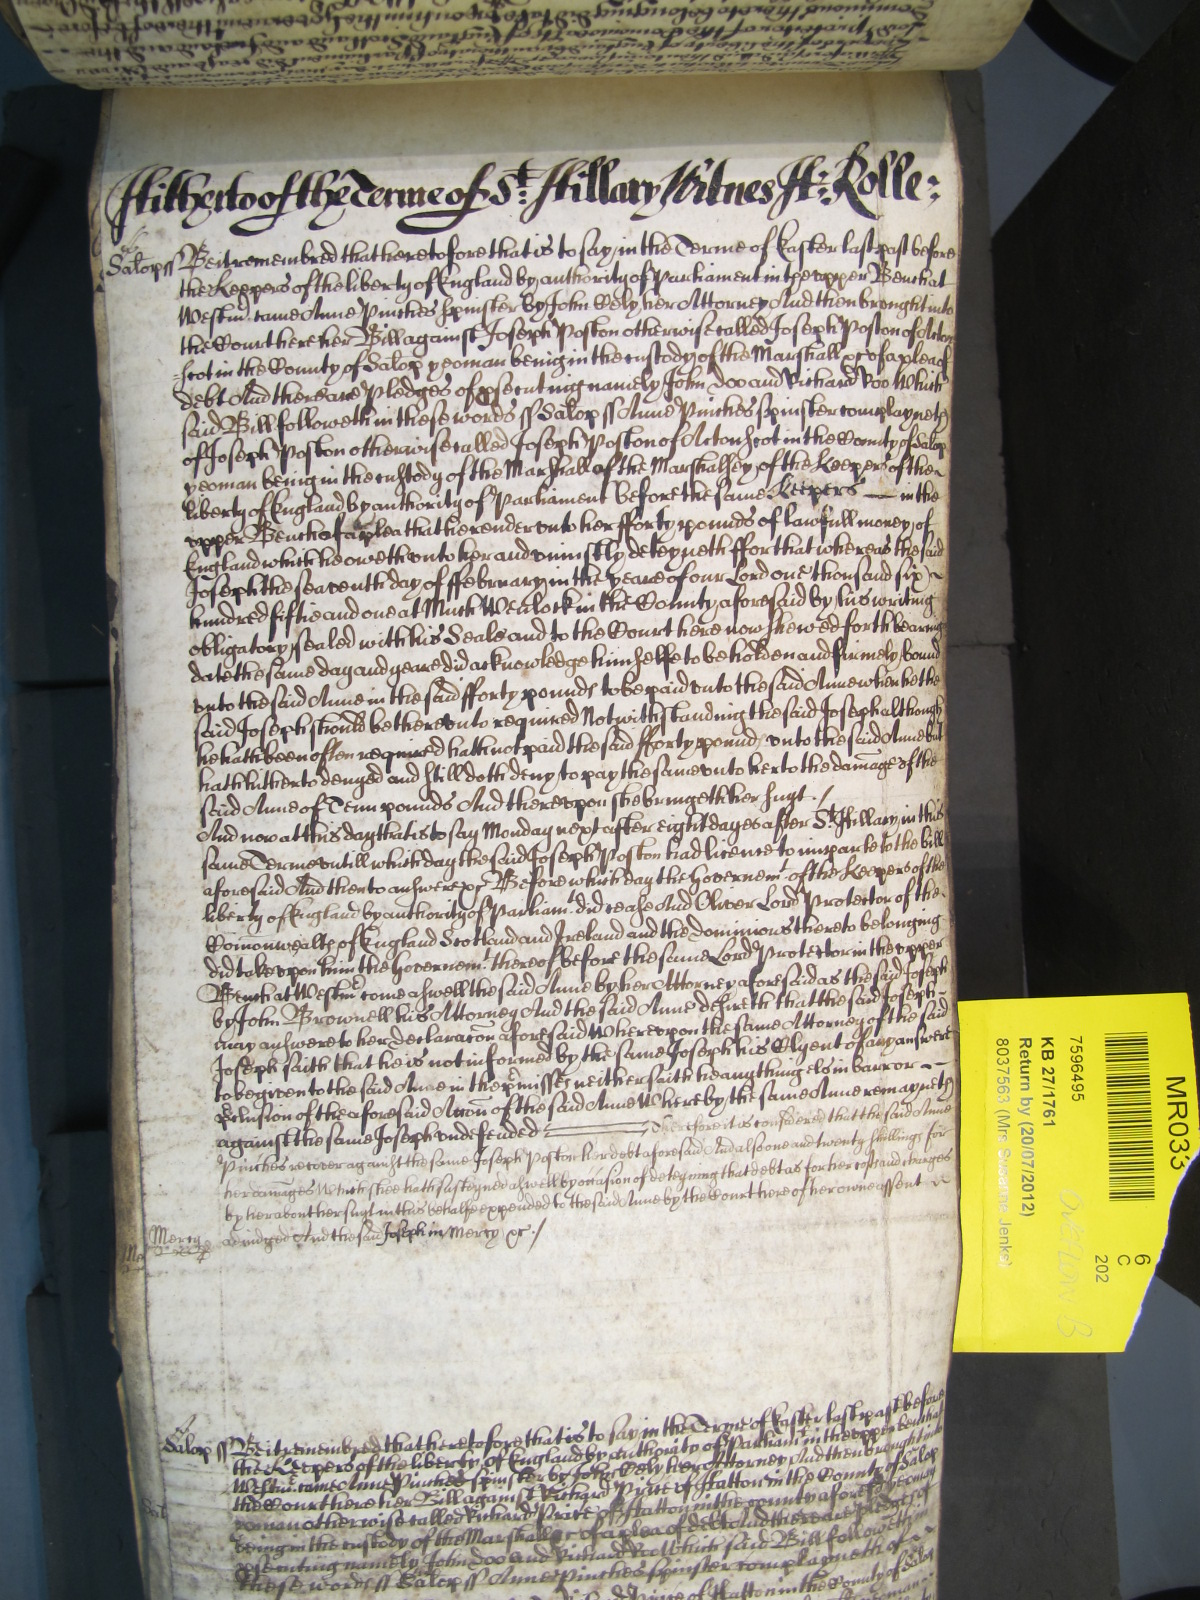 Hitherto of the Terme of St: Hillary Witnes H: Rolle:
Salop ss Be it remembred that heretofore that is to say in the Terme of Easter last past before
the Keepers of the liberty of England by authority of Parliament in the upper Bench at
Westmr. came Anne Pinches spinster by John Edy her Attorney And then brought into
the Court here her Bill against Joseph Poston otherwise called Joseph Poston of Acton
scot in the County of Salop yeoman being in the custody of the Marshall &c of a plea of
debt And there are Pledges of psecuting namely John Doo and Richard Roo Which
said Bill followeth in these words ss Salop ss Anne Pinches Spinster complayneth
of Joseph Poston otherwise called Joseph Poston of Actonscot in the County of Salop
yeoman being in the custody of the Marshall of the Marshalsey of the Keepers of the
liberty of England by authority of Parliament before the same Keepers — in the
upper Bench of a plea that he render unto her fforty pounds of lawfull money of
England which he oweth unto her and uniustly deteyneth ffor that whereas the said
Joseph the seaventh day of ffebruary in the yeare of our Lord one thousand six
hundred fiftie and one at Much Wenlock in the County aforesaid by his writing
obligatory sealed with his Seale and to the Court here now shewed forth bearing
date the same day and yeare did acknowledge himselfe to be holden and firmely bound
unto the said Anne in the said fforty pounds to be paid unto the said Anne when he the
said Joseph should be thereunto required Notwithstanding the said Joseph although
he hath been often required hath not paid the said fforty pounds unto the said Anne but
hath hitherto denyed and still doth deny to pay the same unto her to the damage of the
said Anne of Tenn pounds And thereupon she bringeth her suyt ./
And now at this day that is to say Monday next after eight dayes after St Hillary in this
same Terme untill which day the said Joseph Poston had licence to imparle to the bill
aforesaid And then to answere &c Before which day the Governemt. of the Keepers of the
liberty of England by authority of Parliamt. did cease And Oliver Lord Protector of the
Comonwealth of England Scotland and Ireland and the dominions thereto belonging
did take upon him the Governemt. thereof before the same Lord Protector in the upper
Bench at Westmr. come aswell the said Anne by her Attorney aforesaid as the said Joseph
by John Brownell his Attorney And the said Anne desireth that the said Joseph
may answere to her declaracon aforesaid Whereupon the same Attorney of the said
Joseph saith that he is not informed by the same Joseph his Clyent of any answere
to be given to the said Anne in the pmisses neither saith he any thing els in barr or
pclusion of the aforesaid Accon of the said Anne Whereby the same Anne remayneth
against the same Joseph undefended Therefore it is considered that the said Anne
Pinches recover against the same Joseph Poston her debt aforesaid And also one and twenty shillings for
her damages Which shee hath susteyned aswell by occasion of deteyning that debt as for her costs and charges
by her about her suyt in this behalfe expended to the said Anne by the Court here of her owne assent
Mercy adiudged And the said Joseph in Mercy &c ./
Salop ss Be it remembred that heretofore that is to say in the Terme of Easter last past before
the Keepers of the liberty of England by authority of Parliamt. in the upper bench at
Westmr. came Anne Pinches spinster by John Edy her Attorney And then brought into
the Court here her Bill against Richard of Hatton in the County of Salop
yoman otherwise called Richard of Hatton in the county aforesaid yeoman
being in the custody of the Marshall &c of a plea of debt And there are pledges of
psecuting namely John Doo and Richard Roo Which said Bill followeth in
these words ss Salop ss Anne Pinches spinster complayneth of
of Hatton in the County of Salop
MR033
6
C
202
7596495
KB 27/1761
Return by (20/07/2012)
8037563 (Mrs Susanne Jenks)